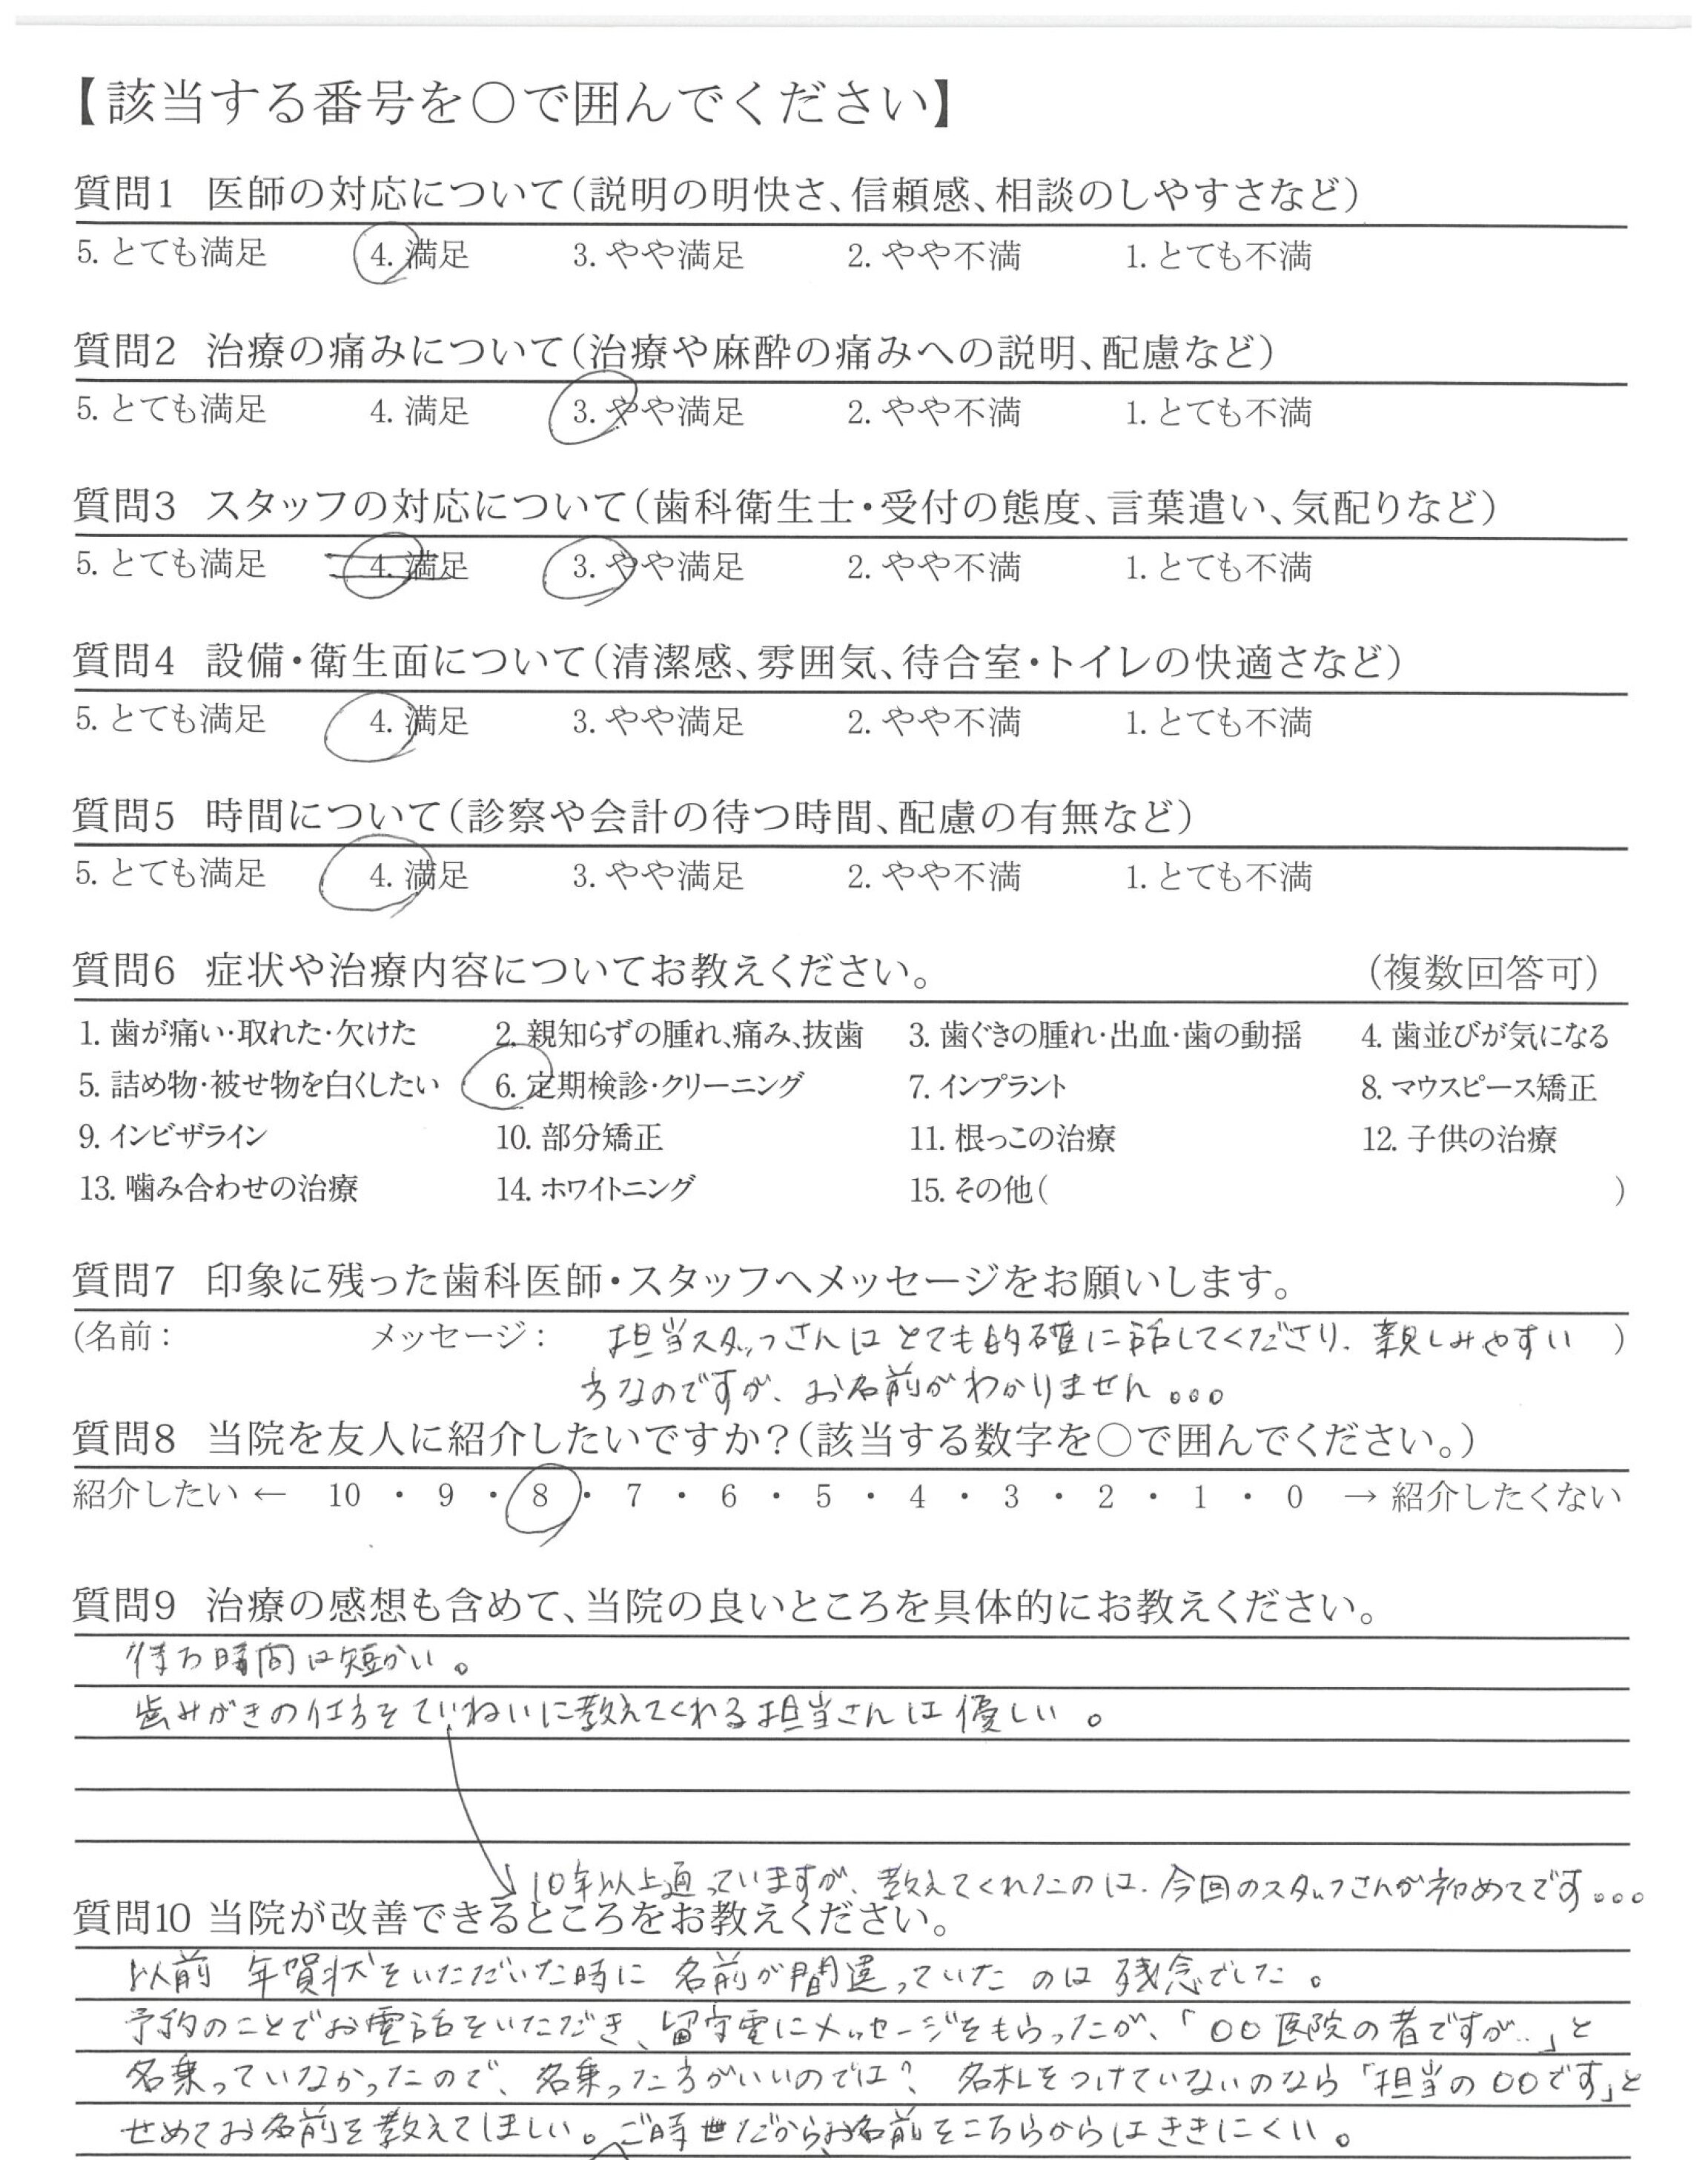 【該当する番号を○で囲んでください】
質問1 医師の対応について(説明の明快さ、信頼感、相談のしやすさなど)
5. とても満足 4. 満足 3. やや満足 2. やや不満 1. とても不満
質問2 治療の痛みについて(治療や麻酔の痛みへの説明、配慮など)
5. とても満足 4. 満足 3. やや満足 2. やや不満 1. とても不満
質問3 スタッフの対応について(歯科衛生士・受付の態度、言葉遣い、気配りなど)
5. とても満足 4. 満足 3. やや満足 2. やや不満 1. とても不満
質問4 設備・衛生面について(清潔感、雰囲気、待合室・トイレの快適さなど)
5. とても満足 4. 満足 3. やや満足 2. やや不満 1. とても不満
質問5 時間について(診察や会計の待つ時間、配慮の有無など)
5. とても満足 4. 満足 3. やや満足 2. やや不満 1. とても不満
質問6 症状や治療内容についてお教えください。 (複数回答可)
1. 歯が痛い・取れた・欠けた 2. 親知らずの腫れ、痛み、抜歯 3. 歯ぐきの腫れ・出血・歯の動揺 4. 歯並びが気になる
5. 詰め物・被せ物を白くしたい 6. 定期検診・クリーニング 7. インプラント 8. マウスピース矯正
9. インビザライン 10. 部分矯正 11. 根っこの治療 12. 子供の治療
13. 噛み合わせの治療 14. ホワイトニング 15. その他( )
質問7 印象に残った歯科医師・スタッフへメッセージをお願いします。
(名前: メッセージ: 担当スタッフさんはとても的確に話してくださり、親しみやすい )
方なのですが、お名前がわかりません。。。
質問8 当院を友人に紹介したいですか?(該当する数字を○で囲んでください。)
紹介したい ← 10 ・ 9 ・ 8 ・ 7 ・ 6 ・ 5 ・ 4 ・ 3 ・ 2 ・ 1 ・ 0 → 紹介したくない
質問9 治療の感想も含めて、当院の良いところを具体的にお教えください。
待つ時間は短かい。
歯みがきの仕方をていねいに教えてくれる担当さんは優しい。
10年以上通っていますが、教えてくれたのは、今回のスタッフさんが初めてです。。。
質問10 当院が改善できるところをお教えください。
以前 年賀状をいただいた時に 名前が間違っていたのは 残念でした。
予約のことでお電話をいただき、留守電にメッセージをもらったが、「○○医院の者ですが‥」と
名乗っていなかったので、名乗った方がいいのでは? 名札をつけていないのなら「担当の○○です」と
せめてお名前を教えてほしい。ご時世だからお名前をこちらからはききにくい。